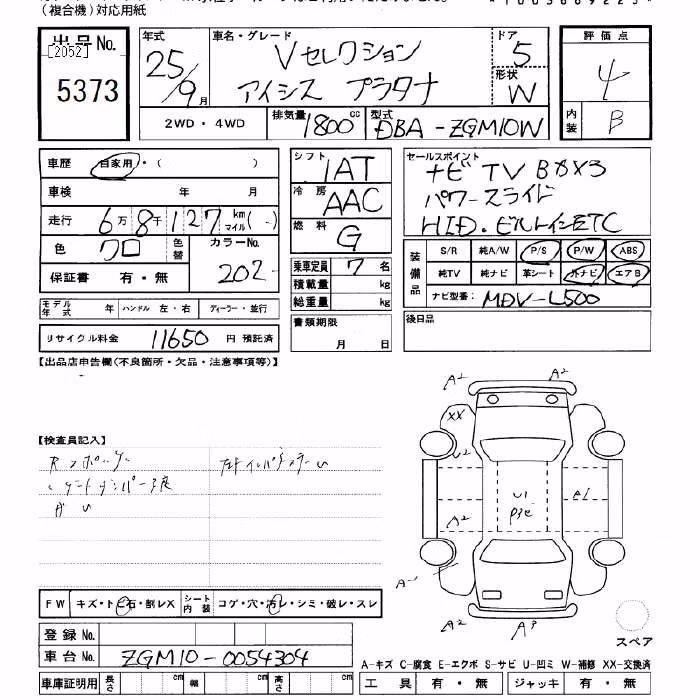 (複合機)対応用紙
出品No.
[2052]
5373
年式
25/9月
車名・グレード
Vセレクション
アイシス プラタナ
ドア
5
形状
W
評価点
4
内装
B
2WD・4WD
排気量 1800cc
型式 DBA-ZGM10W
車歴 自家用・( )
車検 年 月
走行 6万8千127km マイル(-)
色 クロ
色替
カラーNo. 202
保証書 有・無
シフト IAT
冷房 AAC
燃料 G
乗車定員 7名
積載量 kg
総重量 kg
書類期限
月 日
セールスポイント
ナビ TV Bカメラ
パワースライド
HID.ビルトインETC
装備品
S/R 純A/W P/S P/W ABS
純TV 純ナビ 革シート 外ナビ エアB
ナビ型番: MDV-L500
後日品
モデル年式 年 ハンドル 左・右 ディーラー・並行
リサイクル料金 11650円 預託済
【出品店申告欄(不良箇所・欠品・注意事項等)】
【検査員記入】
A2 A2
XX
U2
U1
P3E
E1
A2
A-
A2 A3
スペア
FW キズ・トビ石・割レX
シート内装 コゲ・穴・汚レ・シミ・破レ・スレ
登録No.
車台No. ZGM10-0054304
A-キズ C-腐食 E-エクボ S-サビ U-凹ミ W-補修 XX-交換済
車庫証明用 長さ cm 幅 cm 高さ cm
工具 有・無 ジャッキ 有・無